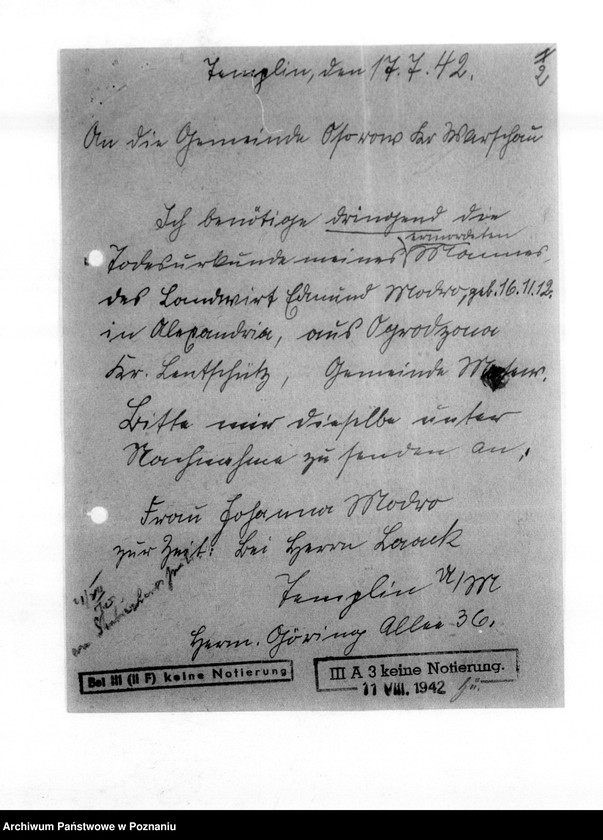 Templin, den 17.7.42.
1/2
An die Gemeinde Osorow Kr Warschau
Ich benötige dringend die
ermordeten
Todesurkunde meines Mannes,
des Landwirt Edmund Modro, geb. 16.11.12.
in Alexandria, aus Ogrodzona
Kr. Lentschütz, Gemeinde
Bitte mir dieselbe unter
Nachnahme zu senden an,
Frau Johanna Modro
zur Zeit: bei Herrn Laack
Templin U/M
Herm. Göring Allee 36.
Bei III (II F) keine Notierung
III A 3 keine Notierung.
11 VIII. 1942
Archiwum Państwowe w Poznaniu